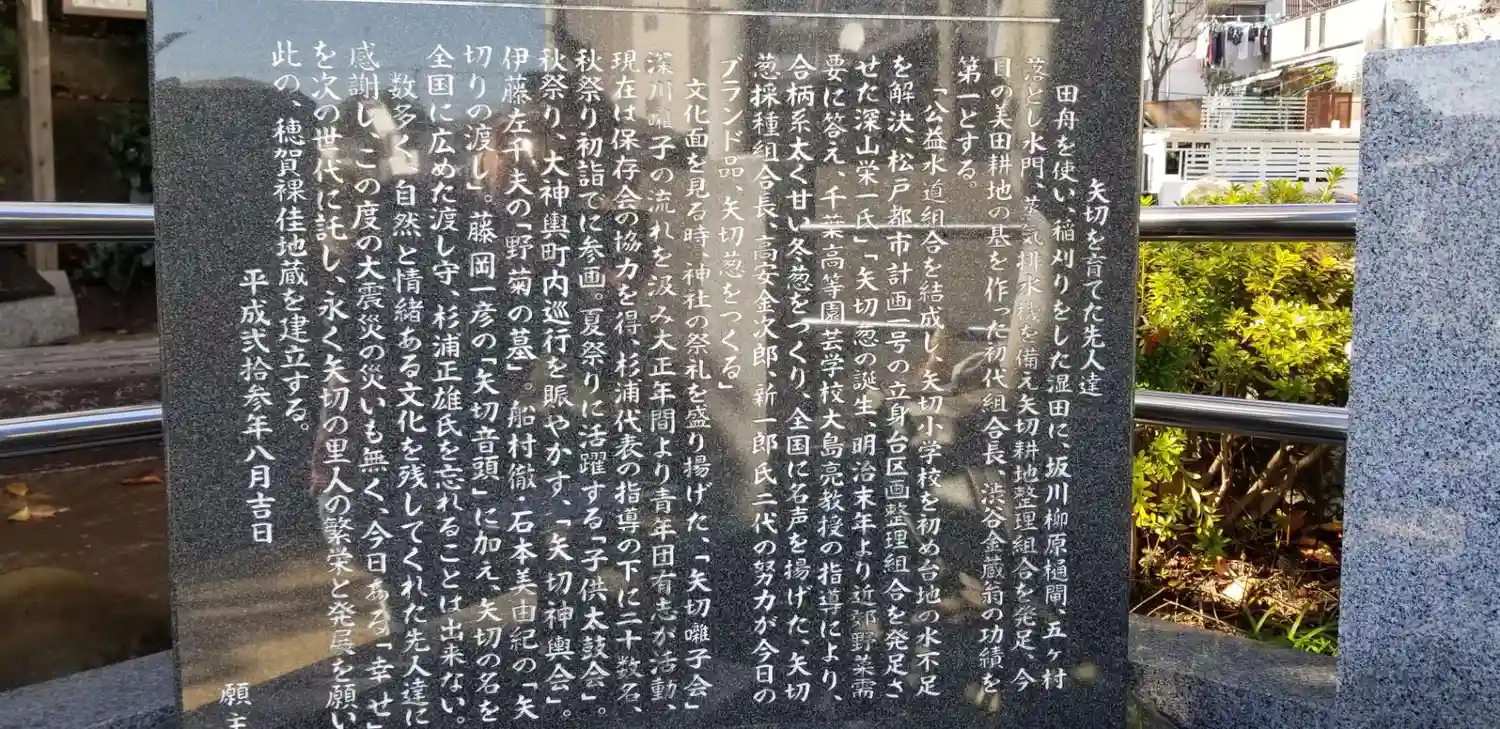 矢切を育てた先人達
田舟を使い、稲刈りをした湿田に、坂川柳原樋閘、五ヶ村
落とし水門、蒸気排水機を備え矢切耕地整理組合を発足、今
日の美田耕地の基を作った初代組合長、渋谷金蔵翁の功績を
第一とする。
「公益水道組合を結成し、矢切小学校を初め台地の水不足
を解決、松戸都市計画一号の立身台区画整理組合を発足さ
せた深山栄一氏」「矢切葱の誕生、明治末年より近郊野菜需
要に答え、千葉高等園芸学校大島亮教授の指導により、
合柄系太く甘い冬葱をつくり、全国に名声を揚げた、矢切
葱採種組合長、高安金次郎、新一郎氏二代の努力が今日の
ブランド品、矢切葱をつくる」
文化面を見る時、神社の祭礼を盛り揚げた、「矢切囃子会」
深川囃子の流れを汲み大正年間より青年団有志が活動、
現在は保存会の協力を得、杉浦代表の指導の下に二十数名、
秋祭り初詣でに参画。夏祭りに活躍する「子供太鼓会」。
秋祭り、大神輿町内巡行を賑やかす、「矢切神輿会」。
伊藤左千夫の「野菊の墓」。船村徹・石本美由紀の「矢
切りの渡し」。藤岡一彦の「矢切音頭」に加え、矢切の名を
全国に広めた渡し守、杉浦正雄氏を忘れることは出来ない。
数多く、自然と情緒ある文化を残してくれた先人達に
感謝し、この度の大震災の災いも無く、今日ある「幸せ」
を次の世代に託し、永く矢切の里人の繁栄と発展を願い
此の、穂賀裸佳地蔵を建立する。
平成弐拾参年八月吉日
願主